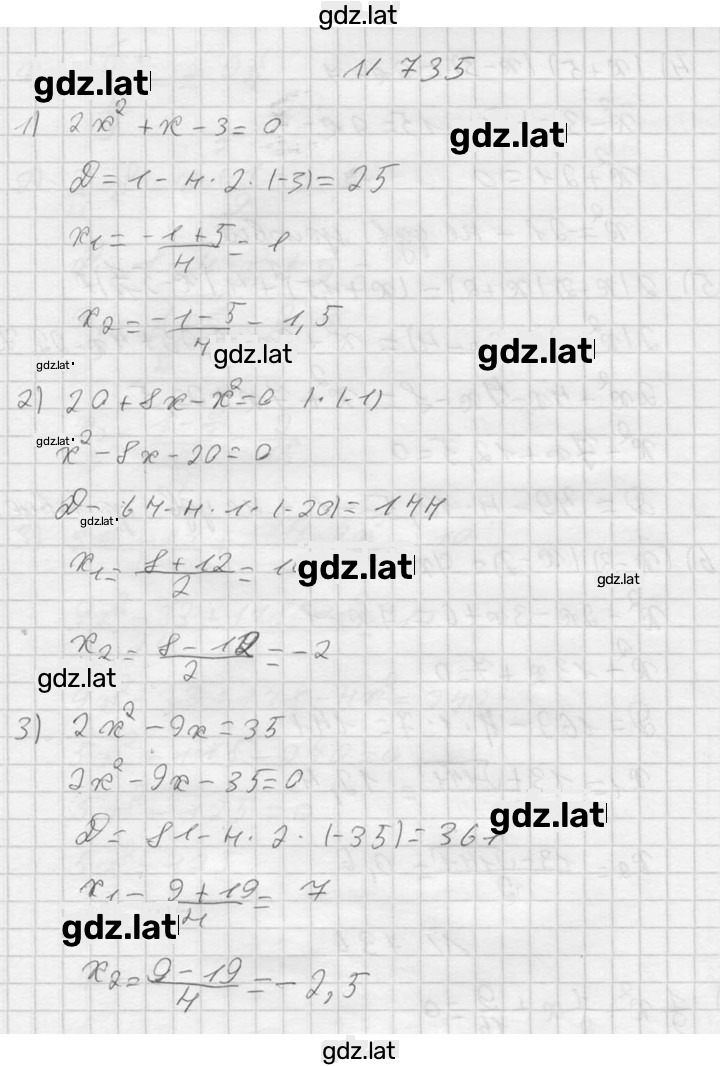 gdz.lat
11 735
gdz.lat
gdz.lat
1) 2x² + x - 3 = 0
D = 1 - 4 · 2 · (-3) = 25
x₁ = (-1 + 5)/4 = 1
x₂ = (-1 - 5)/4 - 1,5
gdz.lat
gdz.lat
gdz.lat
2) 20 + 8x - x² = 0 | · (-1)
gdz.lat
x² - 8x - 20 = 0
D - 64 - 4 · 1 · (-20) = 144
gdz.lat
x₁ = (8 + 12)/2 =
gdz.lat
gdz.lat
x₂ = (8 - 12)/2 = -2
gdz.lat
3) 2x² - 9x = 35
2x² - 9x - 35 = 0
gdz.lat
D = 81 - 4 · 2 · (-35) = 361
x₁ - (9 + 19)/4 = 7
gdz.lat
x₂ = (9 - 19)/4 = -2,5
gdz.lat